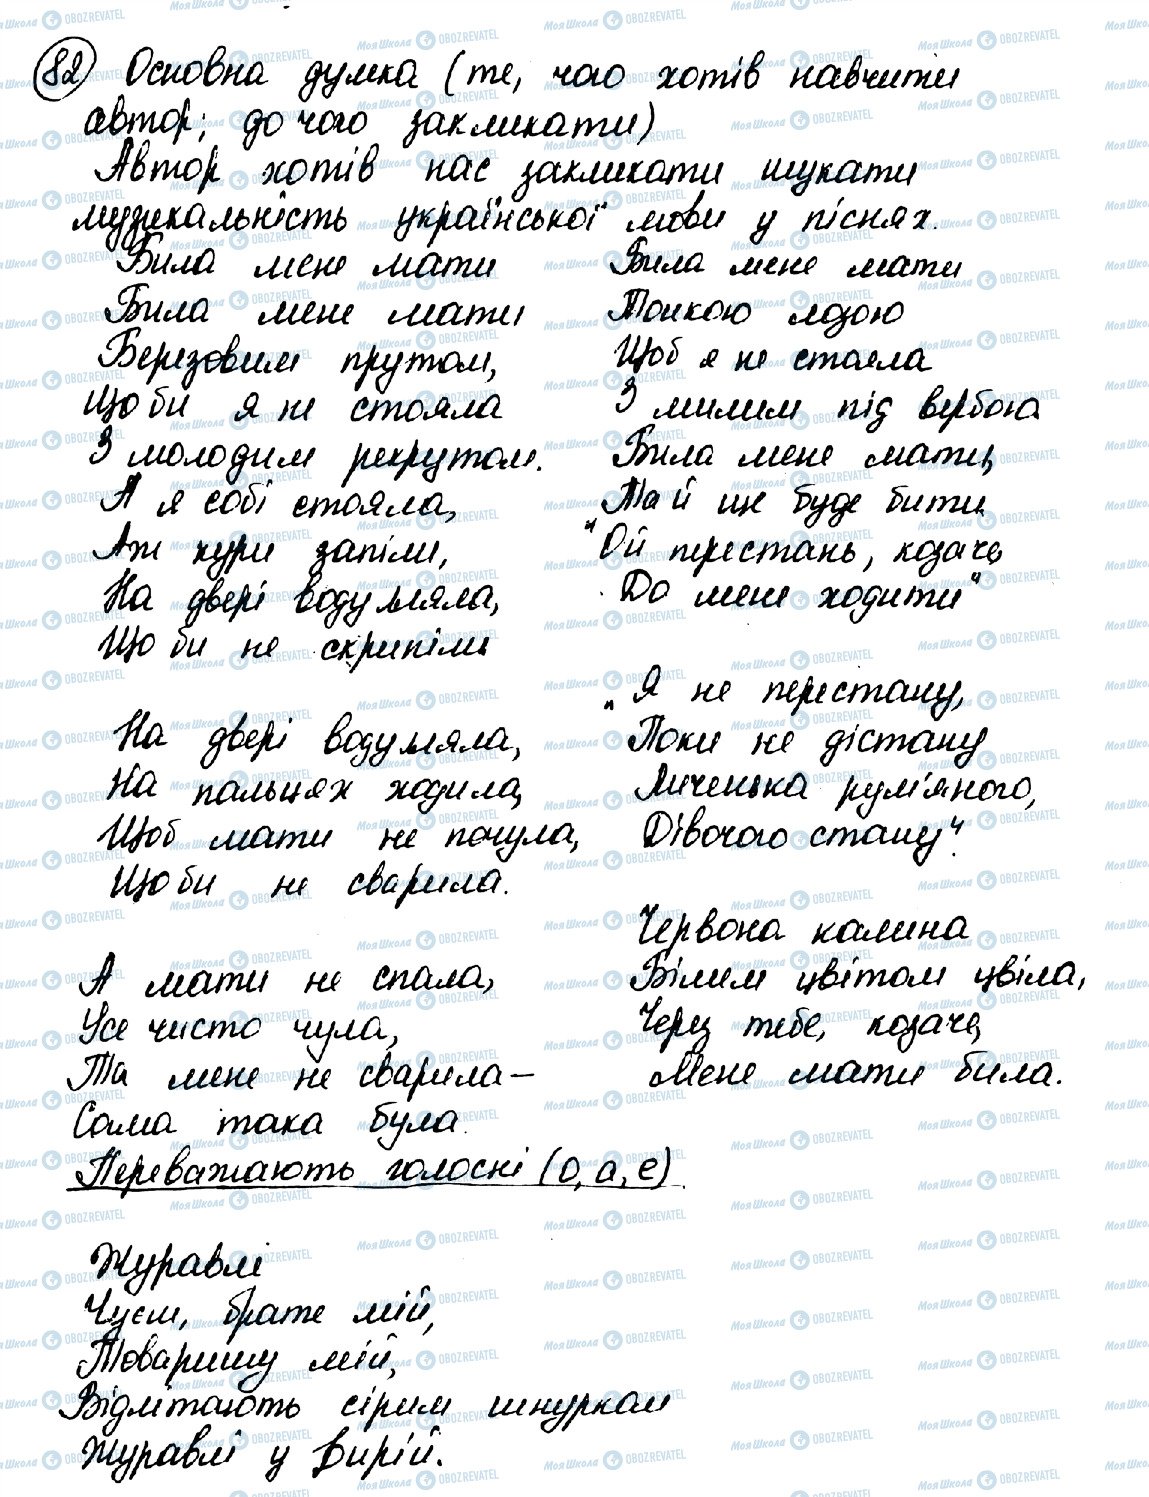 82 Основна думка (те, чого хотів навчити
автор; до чого закликати)
Автор хотів нас закликати шукати
музикальність української мови у піснях.
Била мене мати
Била мене мати
Березовим прутом,
Щоби я не стояла
З молодим рекрутом.
А я собі стояла,
Аж кури запіли,
На двері воду лляла,
Щоби не скрипіли
На двері воду лляла,
На пальцях ходила,
Щоб мати не почула,
Щоби не сварила.
А мати не спала,
Усе чисто чула,
Та мене не сварила –
Сама така була.
Била мене мати
Тонкою лозою
Щоб я не стояла
З милим під вербою
Била мене мати,
Та й ще буде бити.
"Ой перестань, козаче,
До мене ходити"
"Я не перестану,
Поки не дістану
Личенька рум'яного,
Дівочого стану".
Червона калина
Білим цвітом цвіла,
Через тебе, козаче,
Мене мати била.
Переважають голосні (о, а, е).
Журавлі
Чуєш, брате мій,
Товаришу мій,
Відлітають сірим шнурком
Журавлі у вирій.